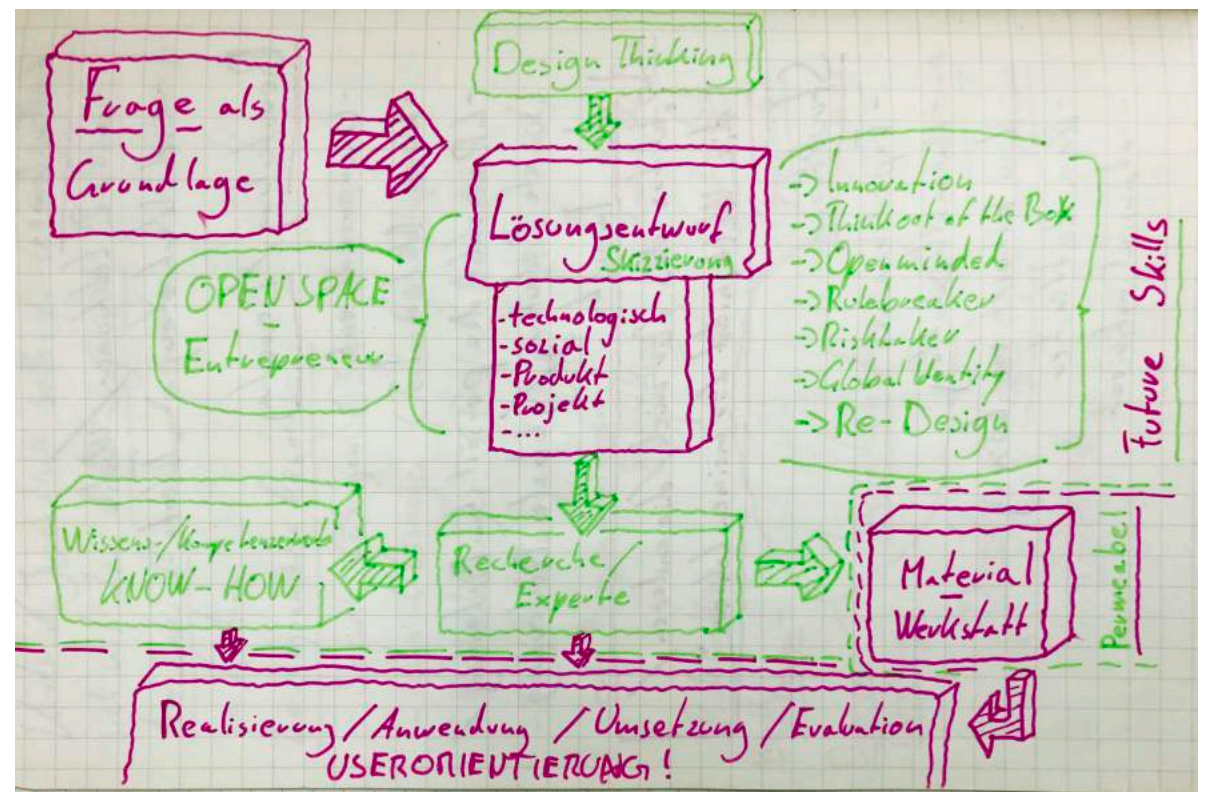 Frage als
Grundlage
Design Thinking
Lösungsentwurf
Skizzierung
- technologisch
- sozial
- Produkt
- Projekt
- ...
OPEN SPACE
-
Entrepreneur
-> Innovation
-> Think oot of the Box
-> Openminded
-> Rulebreaker
-> Risktaker
-> Global Identity
-> Re-Design
Future Skills
Wissens-/Kompetenzerwerb
KNOW-HOW
Recherche/
Experte
Material
-
Werkstatt
Permeabel
Realisierung / Anwendung / Umsetzung / Evaluation
USERORIENTIERUNG!